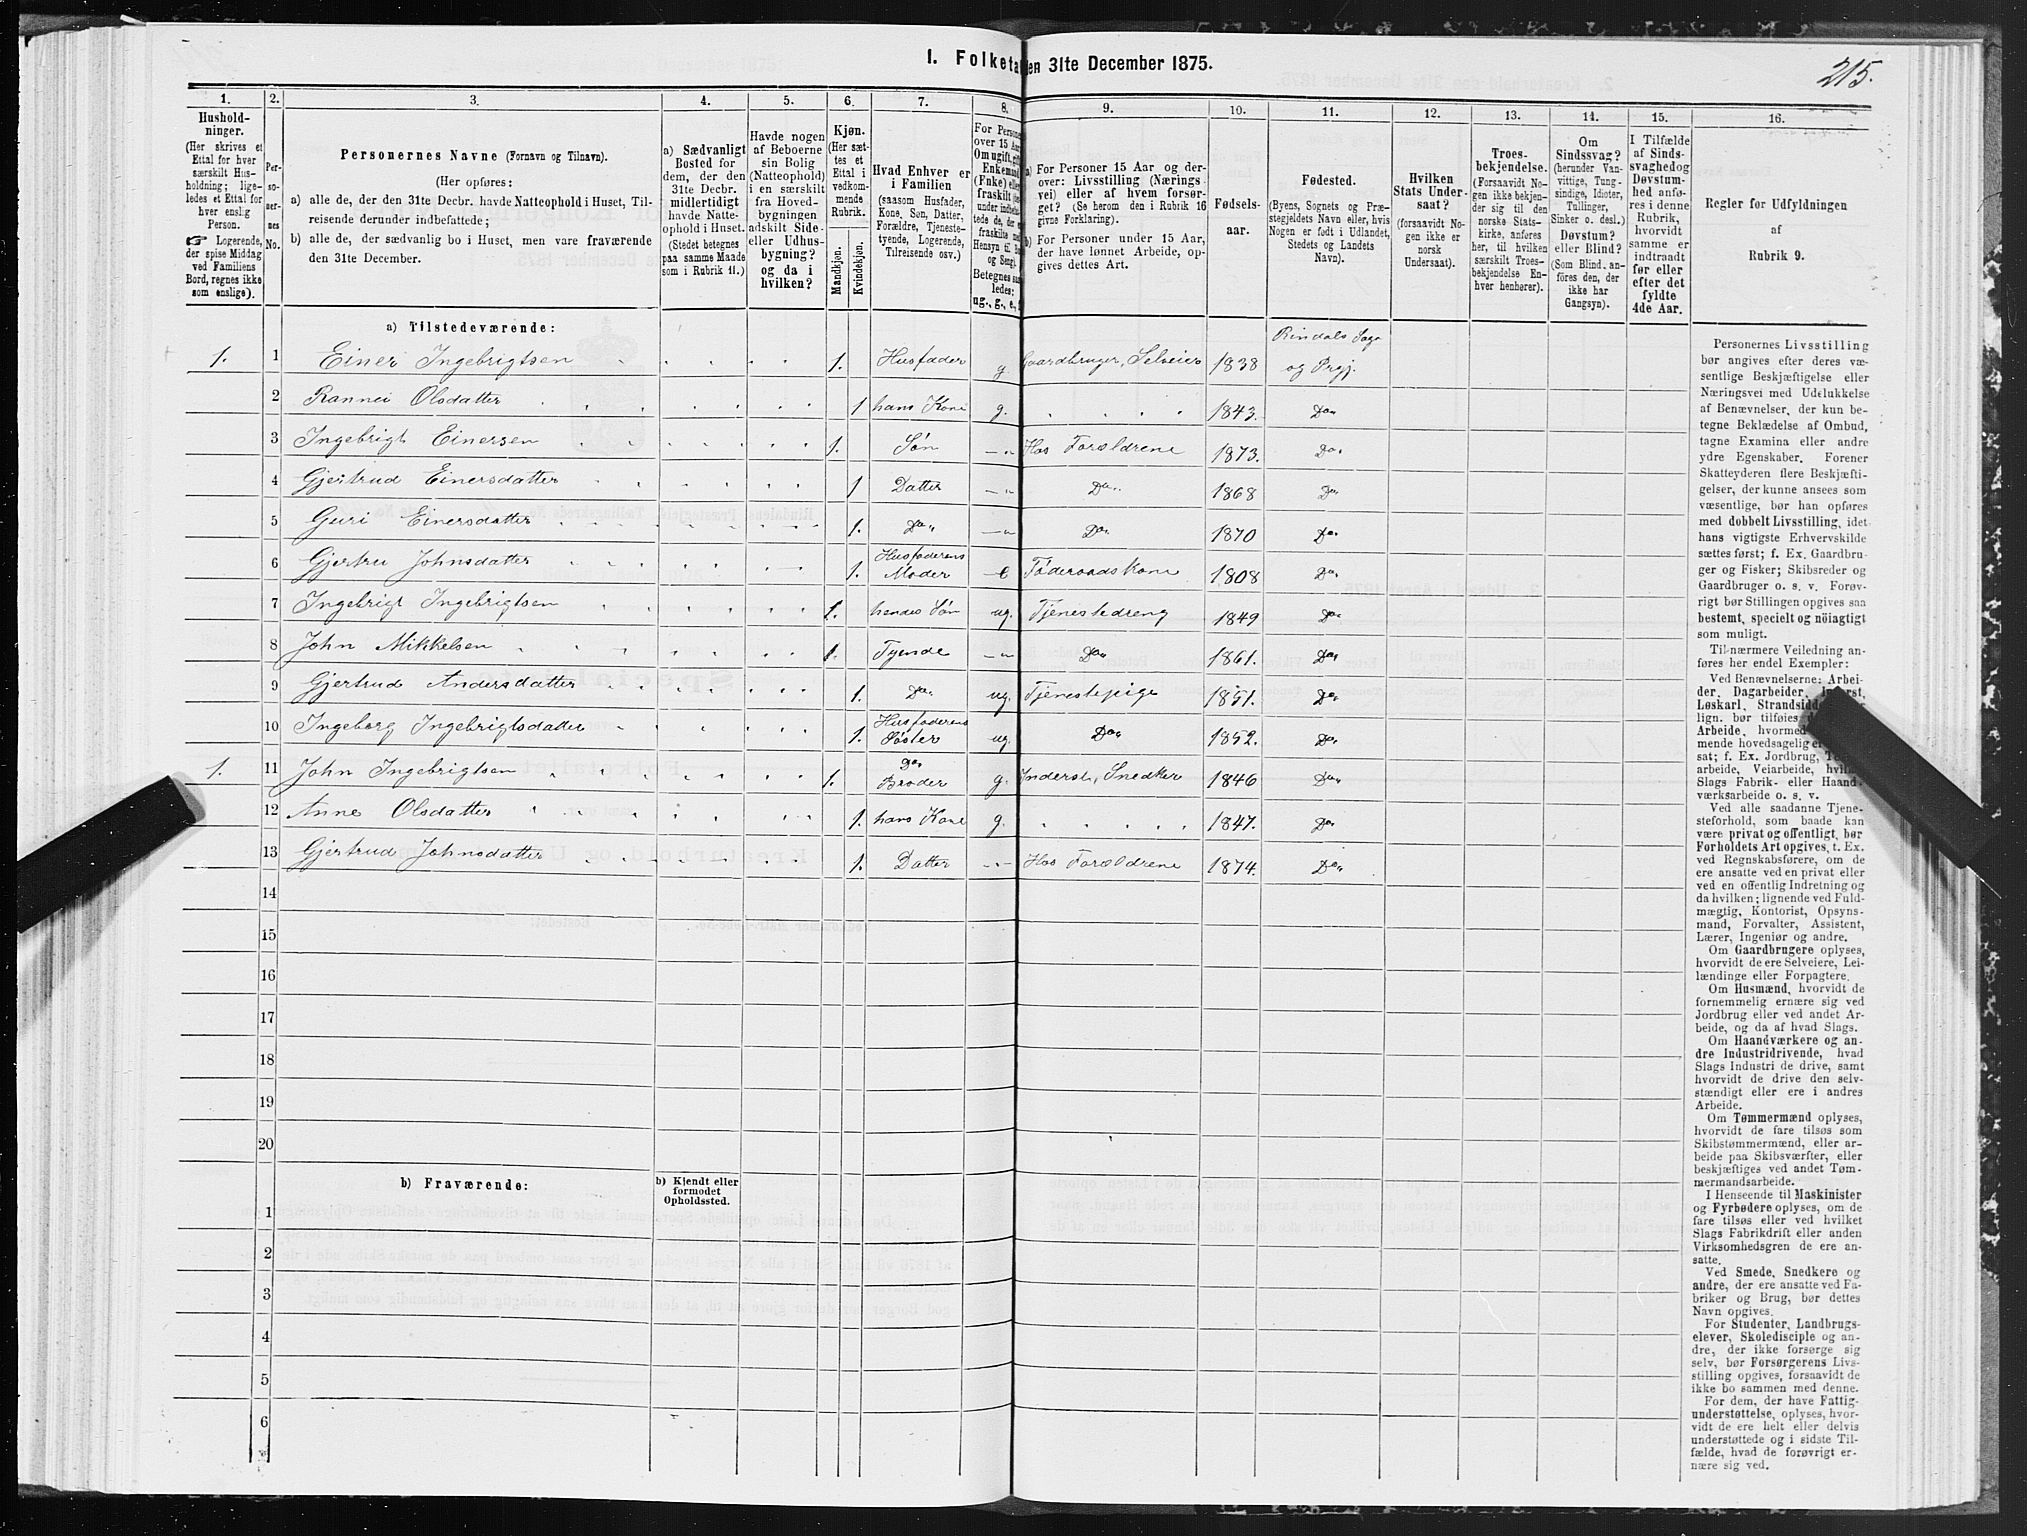 I. Folketal den 31te December 1875.
215.
1.
Hushold-
ninger.
(Her skrives et
Ettal for hver
særskilt Hus-
holdning; lige-
ledes et Ettal for
hver enslig
Person.
☞ Logerende,
der spise Middag
ved Familiens
Bord, regnes ikke
som enslige).
2.
Per-
so-
ner-
nes
No.
3.
Personernes Navne (Fornavn og Tilnavn).
(Her opføres:
a) alle de, der den 31te Decbr. havde Natteophold i Huset, Til-
reisende derunder indbefattede;
b) alle de, der sædvanlig bo i Huset, men vare fraværende
den 31te December.
4.
a) Sædvanligt
Bosted for
dem, der den
31te Decbr.
midlertidigt
havde Natte-
ophold i Huset.
(Stedet betegnes
paa samme Maade
som i Rubrik 11.)
5.
Havde nogen
af Beboerne
sin Bolig
(Natteophold)
i en særskilt
fra Hoved-
bygningen
adskilt Side-
eller Udhus-
bygning?
og da i
hvilken?
6.
Kjøn.
(Her sæt-
tes et
Ettal i
vedkom-
mende
Rubrik.
Mandkjøn.
Kvindekjøn.
7.
Hvad Enhver er
i Familien
(saasom Husfader,
Kone, Søn, Datter,
Forældre, Tjeneste-
tyende, Logerende,
Tilreisende osv.)
8.
9.
a) For Personer 15 Aar og der-
over: Livsstilling (Nærings-
vei) eller af hvem forsør-
get? (Se herom den i Rubrik 16
givne Forklaring).
b) For Personer under 15 Aar,
der have lønnet Arbeide, op-
gives dettes Art.
10.
Fødsels-
aar.
11.
Fødested.
(Byens, Sognets og Præ-
stegjeldets Navn eller, hvis
Nogen er født i Udlandet,
Stedets og Landets
Navn).
12.
Hvilken
Stats Under-
saat?
(forsaavidt No-
gen ikke er
norsk
Undersaat).
13.
Troes-
bekjendelse.
(Forsaavidt No-
gen ikke bekjen-
der sig til den
norske Stats-
kirke, anføres
her, til hvilken
særskilt Troes-
bekjendelse En-
hver henhører).
14.
Om
Sindssvag?
(herunder Van-
vittige, Tung-
sindige, Idioter,
Tullinger,
Sinker o. desl.)
Døvstum?
eller Blind?
(Som Blind, an-
føres den, der
ikke har
Gangsyn).
15.
I Tilfælde
af Sinds-
svaghed og
Døvstum-
hed anfø-
res i denne
Rubrik,
hvorvidt
samme er
indtraadt
før eller
efter det
fyldte
4de Aar.
16.
Regler for Udfyldningen
af
Rubrik 9.
a) Tilstedeværende:
1. 1 Einer Ingebrigtsen 1. Husfader g Gaardbruger, Selveier 1838 Rindals Sogn og Prgj.
2 Rannei Olsdatter 1 hans Kone g. 1843. Do.
3 Ingebrigt Einersen 1. Søn Hos Forældrene 1873. Do.
4 Gjertrud Einersdatter 1 Datter Do. 1868 Do
5 Guri Einersdatter 1. Do. Do. 1870 Do.
6 Gjertru Johnsdatter 1. Husfaderens Moder e Føderaadskone 1808 Do.
7 Ingebrigt Ingebrigtsen 1. hendes Søn ug. Tjenestedreng 1849 Do.
8 John Mikkelsen 1. Tyende Do. 1861. Do.
9 Gjertrud Andersdatter 1. Do. ug. Tjenestepige 1851. Do.
10 Ingeborg Ingebrigtsdatter 1. Husfaderens Søster ug. Do. 1852. Do.
1. 11 John Ingebrigtsen 1. Do. Broder g. Inderst, Snedker 1846 Do.
12 Anne Olsdatter 1. hans Kone g. 1847. Do.
13 Gjertrud Johnsdatter 1. Datter Hos Forældrene 1874. Do.
14
15
16
17
18
19
20
b) Fraværende:
b) Kjendt eller
formodet
Opholdssted.
1
2
3
4
5
6
Personernes Livsstilling
bør angives efter deres væ-
sentlige Beskjæftigelse eller
Næringsvei med Udelukkelse
af Benævnelser, der kun be-
tegne Beklædelse af Ombud,
tagne Examina eller andre
ydre Egenskaber. Forener
Skatteyderen flere Beskjæfti-
gelser, der kunne ansees som
væsentlige, bør han opføres
med dobbelt Livsstilling, idet
hans vigtigste Erhvervskilde
sættes først; f. Ex. Gaardbru-
ger og Fisker; Skibsreder og
Gaardbruger o. s. v. Forøv-
rigt bør Stillingen opgives saa
bestemt, specielt og nöiagtigt
som muligt.
Til nærmere Veiledning an-
føres her endel Exempler:
Ved Benævnelserne: Arbei-
der, Dagarbeider, Inderst,
Løskarl, Strandsidder
lign. bør tilføies
Arbeide, hvormed
mende hovedsagelig er
sat; f. Ex. Jordbrug,
arbeide, Veiarbeide,
Slags Fabrik- eller Haand-
værksarbeide o. s. v.
Ved alle saadanne Tjene-
steforhold, som baade kan
være privat og offentligt, bør
Forholdets Art opgives, t. Ex.
ved Regnskabsførere, om de
ere ansatte ved en privat eller
ved en offentlig Indretning og
da hvilken; lignende ved Fuld-
mægtig, Kontorist, Opsyns-
mand, Forvalter, Assistent,
Lærer, Ingeniør og andre.
Om Gaardbrugere oplyses,
hvorvidt de ere Selveiere, Lei-
lændinge eller Forpagtere.
Om Husmænd, hvorvidt de
fornemmelig ernære sig ved
Jordbrug eller ved andet Ar-
beide, og da af hvad Slags.
Om Haandværkere og an-
dre Industridrivende, hvad
Slags Industri de drive, samt
hvorvidt de drive den selv-
stændigt eller ere i andres
Arbeide.
Om Tømmermænd oplyses,
hvorvidt de fare tilsøs som
Skibstømmermænd, eller ar-
beide paa Skibsværfter, eller
beskjæftiges ved andet Tøm-
mermandsarbeide.
I Henseende til Maskinister
og Fyrbødere oplyses, om de
fare tilsøs eller ved hvilket
Slags Fabrikdrift eller anden
Virksomhedsgren de ere an-
satte.
Ved Smede, Snedkere og
andre, der ere ansatte ved Fa-
briker og Brug, bør dettes
Navn opgives.
For Studenter, Landbrugs-
elever, Skoledisciple og an-
dre, der ikke forsørge sig
selv, bør Forsørgerens Livs-
stilling opgives, forsaavidt de
ikke bo sammen med denne.
For dem, der have Fattig-
understøttelse, oplyses, hvor-
vidt de ere helt eller delvis
understøttede og i sidste Til-
fælde, hvad de forøvrigt er-
nære sig ved.